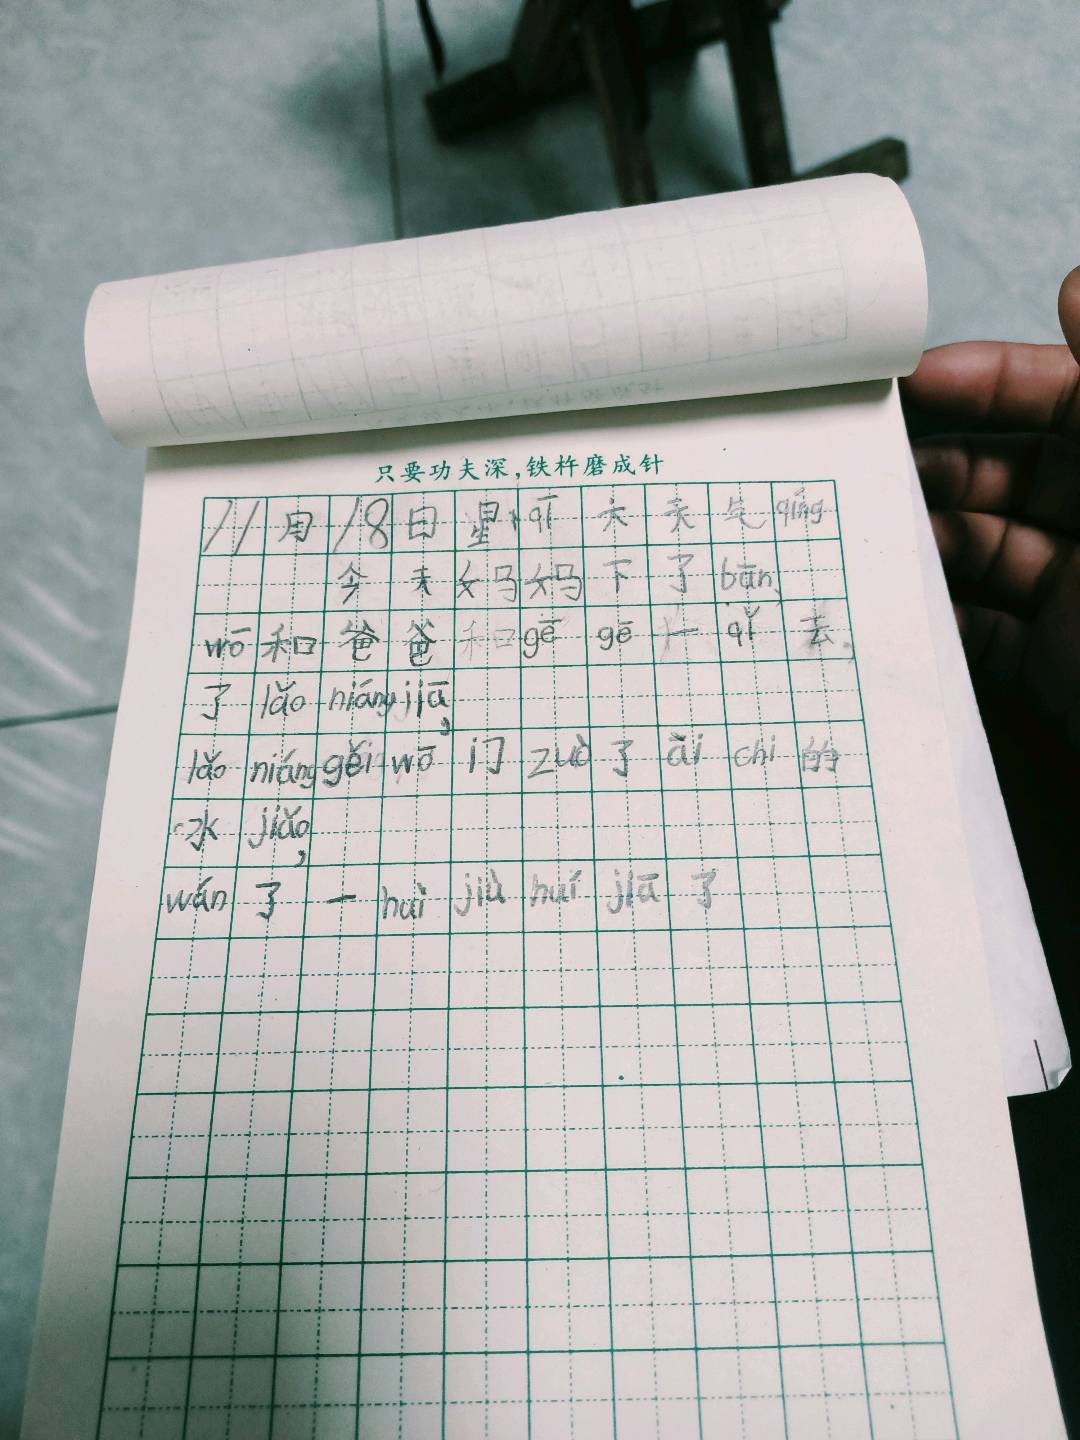 只要功夫深,铁杵磨成针
11月18日星qī天天气qíng
今天妈妈下了bān,
wō和爸爸和gē gē一qǐ去
了lǎo niáng jiā,
lǎo niáng gěi wō门zuò了ài chi的
水jiǎo,
wán了一huì jiù huí jiā了